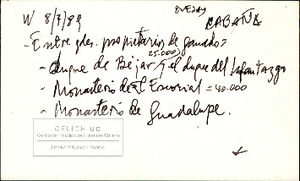 W 8/7/89
OVEJAS
CABAÑA
- Entre gdes. propietarios de ganado =
25.000)
- Duque de Béjar y el duque del Infantazgo
- Monasterio de El Escorial = 40.000
- Monasterio de Guadalupe.
CELICH UC